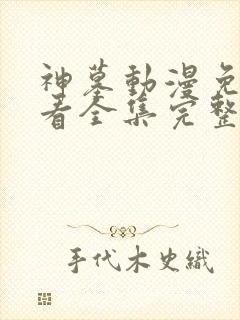 神墓動漫免
看全集完整
手代木史織